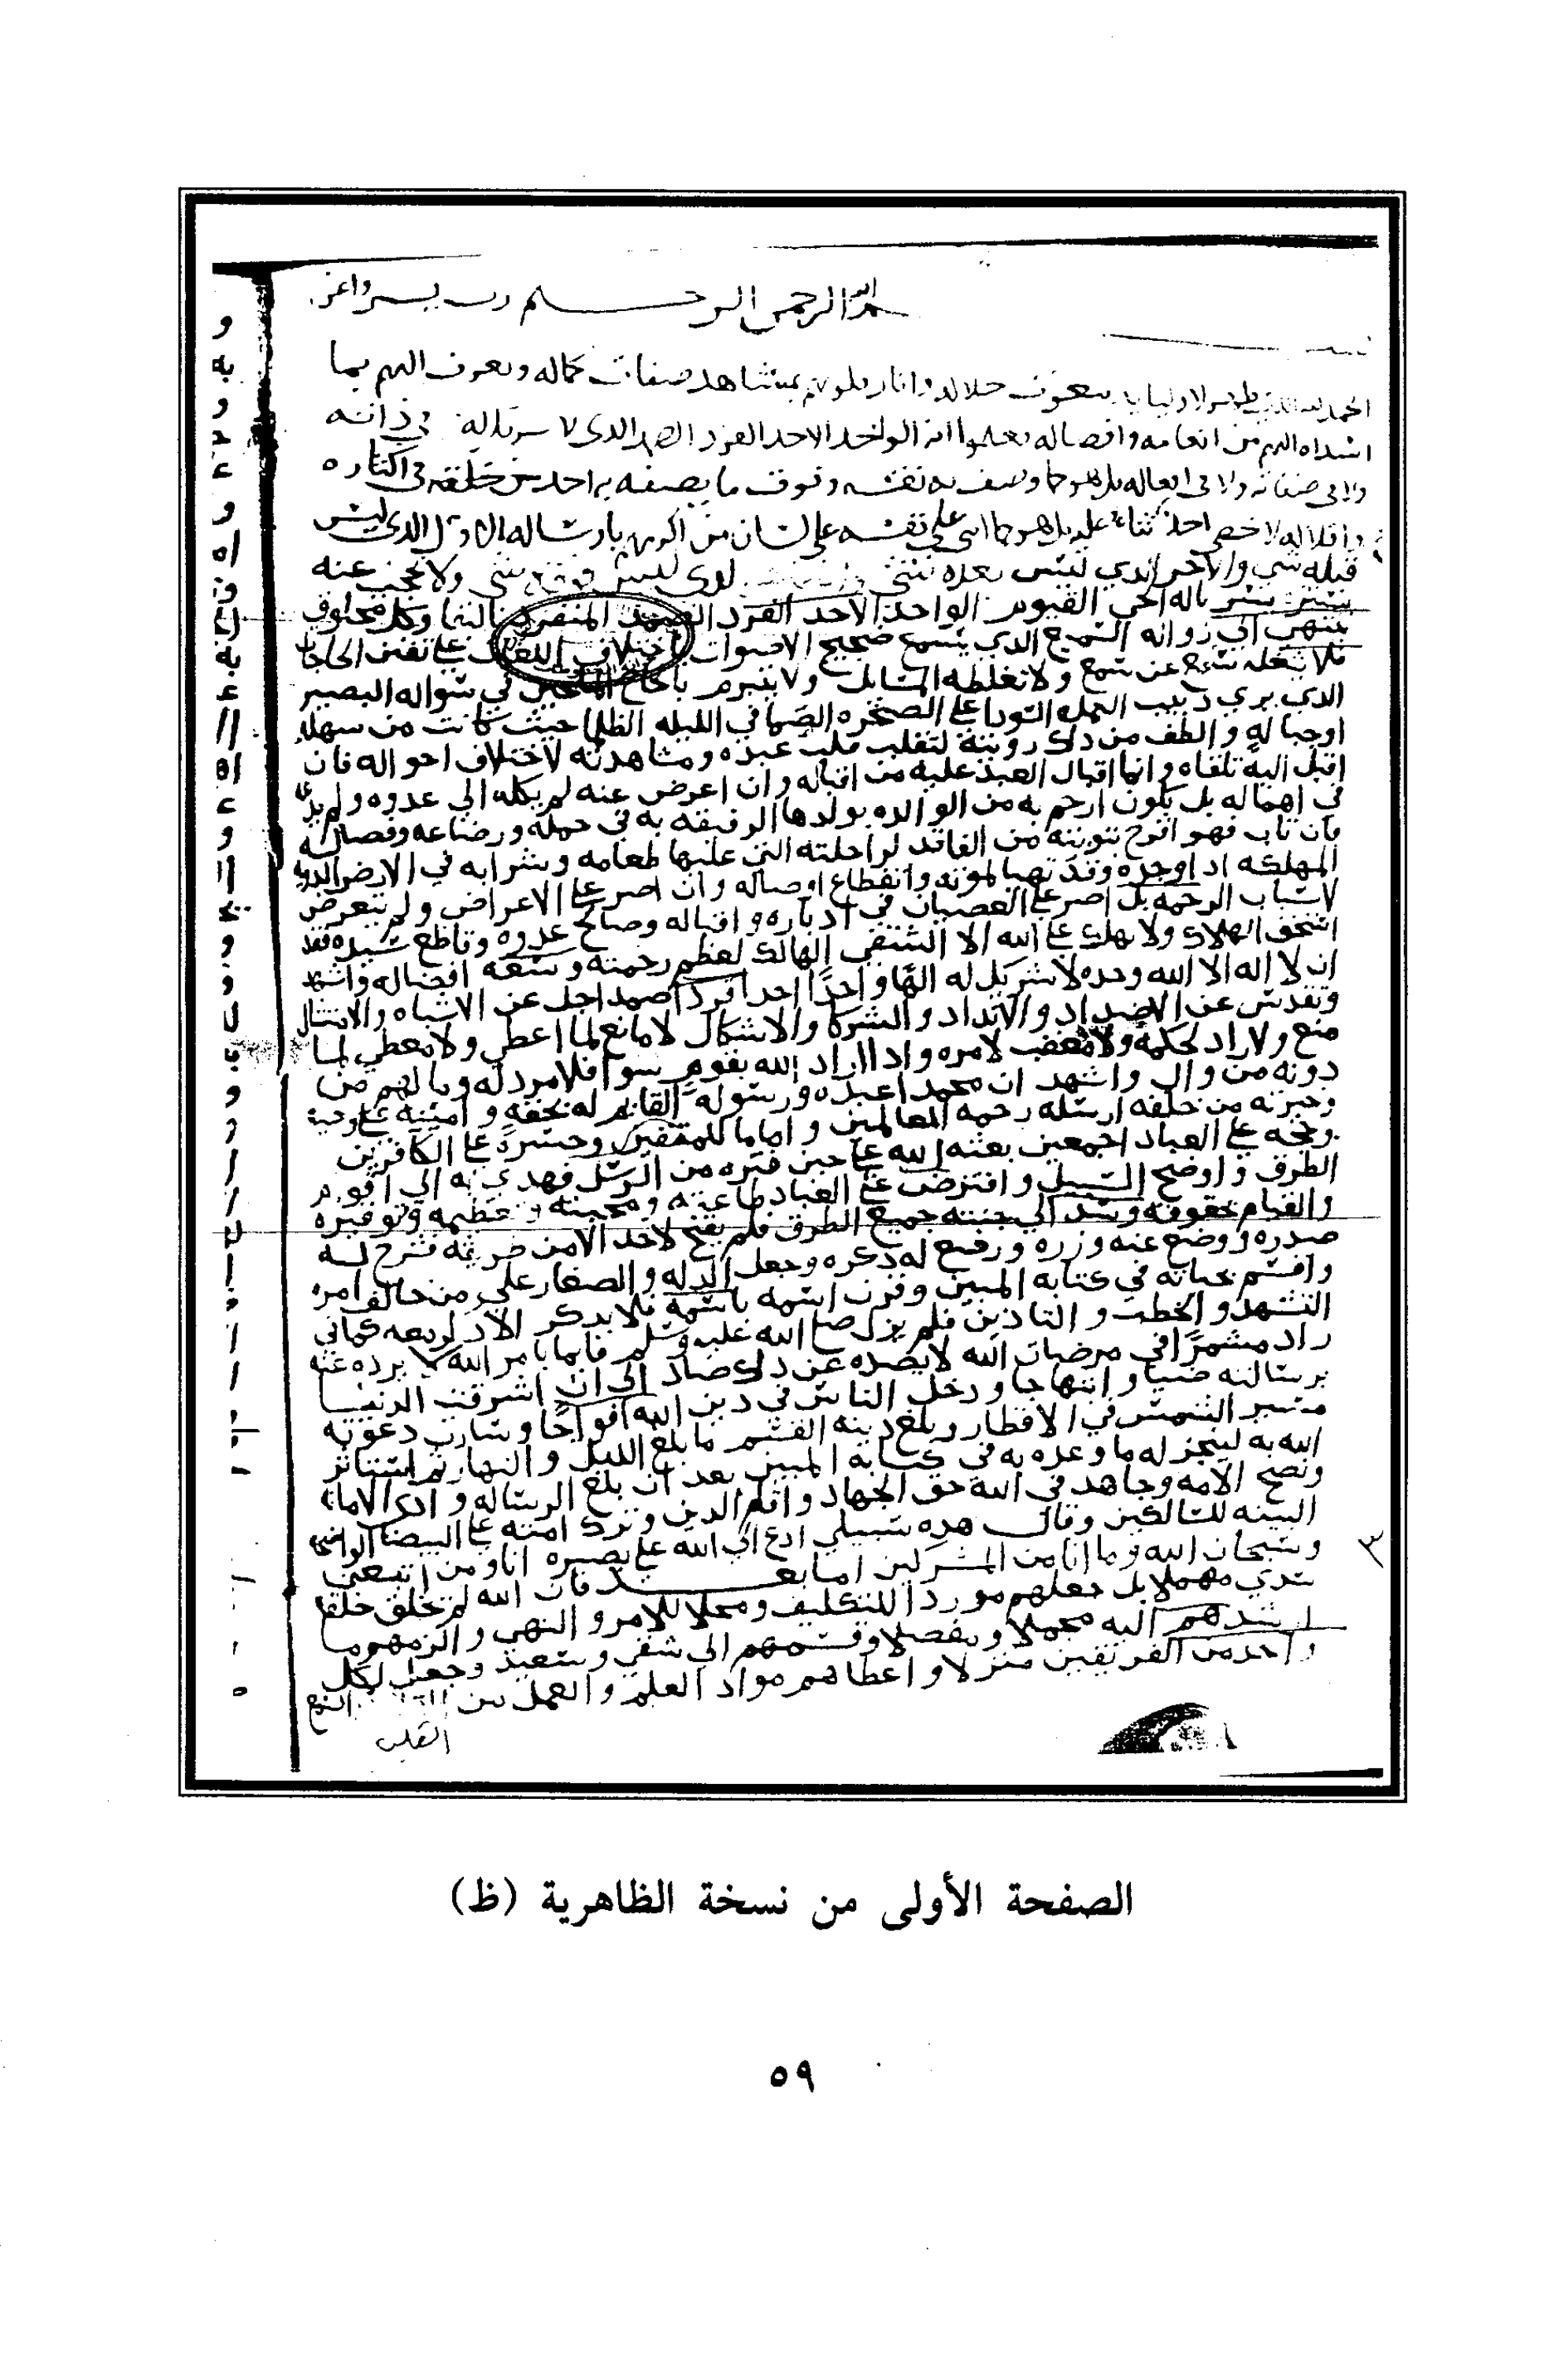 بسم الله الرحمن الرحيم رب يسر واعن
الحمد لله الذي ظهر لاوليائه بنعوت جلاله وانار قلوبهم بمشاهد صفات كماله وتعرف اليهم بما
اسداه اليهم من انعامه وافضاله فعلموا انه الواحد الاحد الفرد الصمد الذي لا شريك له في ذاته
ولا في صفاته ولا في افعاله بل هو كما وصف به نفسه وفوق ما يصفه به احد من خلقه في اكثاره
واقلاله لا يحصي احد ثناء عليه بل هو كما اثنى على نفسه على لسان من اكرمهم بارساله الاول الذي ليس
قبله شي والاخر الذي ليس بعده شي الذي ليس فوقه شي ولا يحجب عنه
تستر بسرباله الحي القيوم الواحد الاحد الفرد الصمد المنفرد بالبقا وكل مخلوق
ينتهي الي زواله السميع الذي يسمع ضجيج الاصوات باختلاف اللغات علي تفنن الحاجات
فلا يشغله سمع عن سمع ولا تغلطه المسايل ولا يتبرم بالحاح الملحين في سواله البصير
الذي يري دبيب النمله السودا علي الصخره الصما في الليله الظلما حيث كانت من سهله
اوجباله والطف من ذلك رويته لتقلب قلب عبده ومشاهدته لاختلاف احواله فان
اقبل اليه تلقاه وانما اقبال العبد عليه من اقباله وان اعرض عنه لم يكله الي عدوه ولم يدعه
في اهماله بل يكون ارحم به من الوالده بولدها الرفيقه به في حمله ورضاعه وفصاله
فان تاب فهو افرح بتوبته من الفاقد لراحلته التي عليها طعامه وشرابه في الارض الدويه
المهلكه اذا وجدها وقد تهيا لموته وانقطاع اوصاله وان اصر علي الاعراض ولم يتعرض
لاسباب الرحمه بل اصر علي العصيان في ادباره واقباله وصالح عدوه وقاطع سيده فقد
استحق الهلاك ولا يهلك علي الله الا الشقي الهالك لعظم رحمته وسعه افضاله واشهد
ان لا اله الا الله وحده لا شريك له الها واحدا احدا فردا صمدا جل عن الاشباه والامثال
وتقدس عن الاضداد والانداد والشركا والاشكال لا مانع لما اعطي ولا معطي لما
منع ولا راد لحكمه ولا معقب لامره واذا اراد الله بقوم سوا فلا مرد له وما لهم من
دونه من وال واشهد ان محمدا عبده ورسوله القايم له بحقه وامينه علي وحيه
وخيرته من خلقه ارسله رحمه للعالمين واماما للمتقين وحسره علي الكافرين
وحجه علي العباد اجمعين بعثه الله علي حين فتره من الرسل فهدي به الي اقوم
الطرق واوضح السبيل وافترض علي العباد طاعته ومحبته وتعظيمه وتوقيره
والقيام بحقوقه وسد الي جنته جميع الطرق فلم يفتح لاحد الا من طريقه فشرح له
صدره ووضع عنه وزره ورفع له ذكره وجعل الذله والصغار علي من خالف امره
واقسم بحياته في كتابه المبين وقرن اسمه باسمه فلا يذكر الا ذكر معه كما في
التشهد والخطب والتاذين فلم يزل صلي الله عليه وسلم قايما بامر الله لا يرده عنه
راد مشمرا في مرضات الله لا يصده عن ذلك صاد الي ان اشرقت الدنيا
برسالته ضيا وابتهاجا ودخل الناس في دين الله افواجا وسارت دعوته
مسير الشمس في الاقطار وبلغ دينه القيم ما بلغ الليل والنهار ثم استاثر
الله به لينجز له ما وعده به في كتابه المبين بعد ان بلغ الرساله وادي الامانه
ونصح الامه وجاهد في الله حق الجهاد واقام الدين وترك امته علي البيضا الواضحه
البينه للسالكين وقال هذه سبيلي ادع الي الله علي بصيره انا ومن اتبعني
وسبحان الله وما انا من المشركين اما بعد فان الله لم يخلق خلقه
سدي مهملا بل جعلهم موردا للتكليف ومحلا للامر والنهي والزمهم فهم ما
ارشدهم اليه مجملا ومفصلا وقسمهم الي شقي وسعيد وجعل لكل
واحد من الفريقين منزلا واعطاهم مواد العلم والعمل من
القلب
٣
الصفحة الأولى من نسخة الظاهرية (ظ)
٥٩